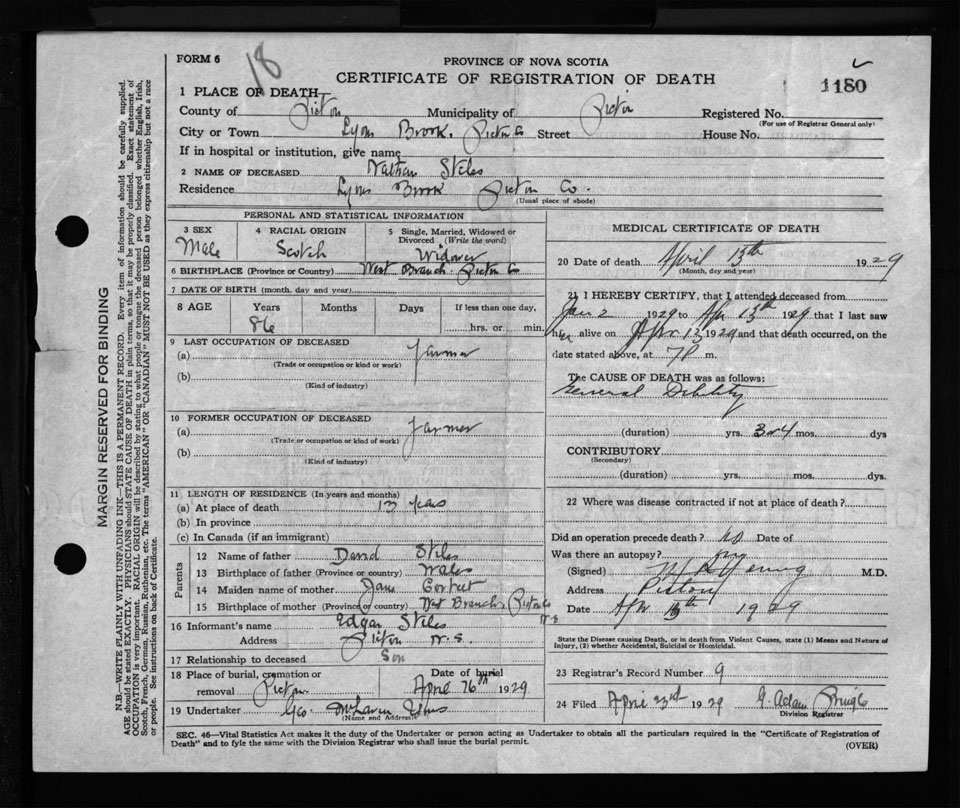 FORM 6
18
PROVINCE OF NOVA SCOTIA
CERTIFICATE OF REGISTRATION OF DEATH
1180
1 PLACE OF DEATH
County of Pictou Municipality of Pictou Registered No.
(For use of Registrar General only)
City or Town Lyons Brook. Pictou Co Street House No.
If in hospital or institution, give name
2 NAME OF DECEASED Nathan Stiles
Residence Lyons Brook Pictou Co.
(Usual place of abode)
PERSONAL AND STATISTICAL INFORMATION
3 SEX Male
4 RACIAL ORIGIN Scotch
5 Single, Married, Widowed or Divorced (Write the word) Widower
6 BIRTHPLACE (Province or Country) West Branch. Pictou Co
7 DATE OF BIRTH (month, day and year)
8 AGE Years Months Days If less than one day,
86 hrs. or min.
9 LAST OCCUPATION OF DECEASED
(a) Farmer
(Trade or occupation or kind or work)
(b)
(Kind of industry)
10 FORMER OCCUPATION OF DECEASED
(a) Farmer
(Trade or occupation or kind of work)
(b)
(Kind of industry)
11 LENGTH OF RESIDENCE (In years and months)
(a) At place of death 13 years
(b) In province
(c) In Canada (if an immigrant)
Parents
12 Name of father David Stiles
13 Birthplace of father (Province or country) Wales
14 Maiden name of mother Jane
15 Birthplace of mother (Province or country) West Branch Pictou Co N.S
16 Informant's name Edgar Stiles
Address Pictou N.S.
17 Relationship to deceased Son
18 Place of burial, cremation or removal Pictou
Date of burial April 16th 1929
19 Undertaker Geo McLaren
(Name and Address)
MEDICAL CERTIFICATE OF DEATH
20 Date of death April 13th 1929
(Month, day and year)
21 I HEREBY CERTIFY, that I attended deceased from
Jan 2 1929 to Apr 13th 1929 that I last saw
him alive on Apr 13 1929 and that death occurred, on the
date stated above, at 7 P m.
The CAUSE OF DEATH was as follows:
General Debility
(duration) yrs. 3 or 4 mos. dys
CONTRIBUTORY
(Secondary)
(duration) yrs. mos. dys.
22 Where was disease contracted if not at place of death?
Did an operation precede death? No Date of
Was there an autopsy?
(Signed) M.D.
Address Pictou
Date Apr 13th 1929
State the Disease causing Death, or in death from Violent Causes, state (1) Means and Nature of
Injury, (2) whether Accidental, Suicidal or Homicidal.
23 Registrar's Record Number 9
24 Filed April 23rd 1929 G. Adam
Division Registrar
SEC. 46—Vital Statistics Act makes it the duty of the Undertaker or person acting as Undertaker to obtain all the particulars required in the "Certificate of Registration of
Death" and to fyle the same with the Division Registrar who shall issue the burial permit.
(OVER)
MARGIN RESERVED FOR BINDING
N.B.—WRITE PLAINLY WITH UNFADING INK—THIS IS A PERMANENT RECORD. Every item of information should be carefully supplied.
AGE should be stated EXACTLY. PHYSICIANS should STATE CAUSE OF DEATH in plain terms, so that it may be properly classified. Exact statement of
OCCUPATION is very important. RACIAL ORIGIN will be described by stating to what people or tongue the deceased person belonged whether English, Irish,
Scotch, French, German, Russian, Ruthenian, etc. The terms "AMERICAN" OR "CANADIAN" MUST NOT BE USED as they express citizenship but not a race
or people. See instructions on back of Certificate.